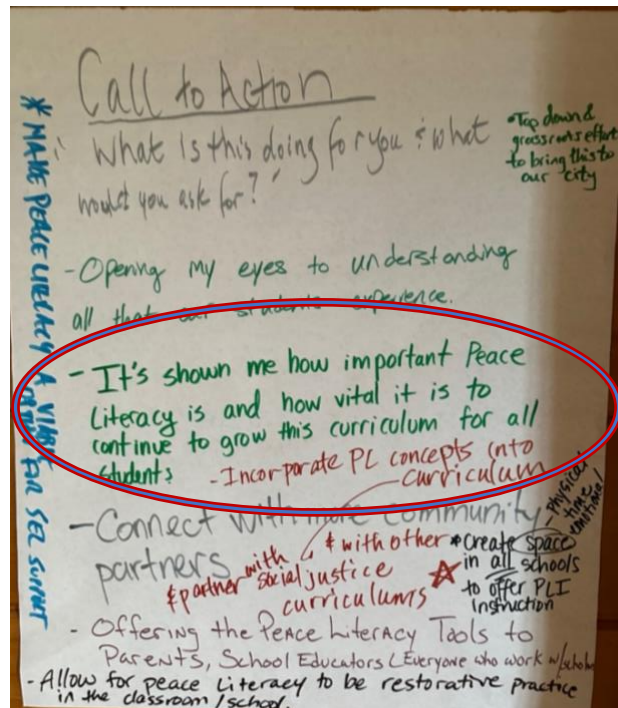 Call to Action
"What is this doing for you & what
would you ask for?"
• Top down &
grassroots effort
to bring this to
our city
* MAKE PEACE LITERACY A VIABLE
OPTION FOR SEL SUPPORT
- Opening my eyes to understanding
all that our students experience.
- It's shown me how important Peace
Literacy is and how vital it is to
continue to grow this curriculum for all
students
- Incorporate PL concepts into
curriculum
- Connect with more community
partners
& partner with
social justice
curriculums
& with other
* create space
in all schools
to offer PLI
Instruction
physical/
time
emotional/
- Offering the Peace Literacy Tools to
Parents, School Educators (Everyone who work w/
- Allow for peace Literacy to be restorative practice
in the classroom/school.